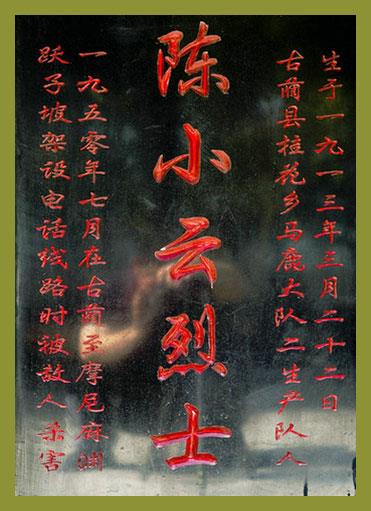 生于一九一三年三月二十二日
古蔺县桂花乡马鹿大队二生产队人
陈小云烈士
一九五零年七月在古蔺至摩尼麻
跃子坡架设电话线路时被敌人杀害